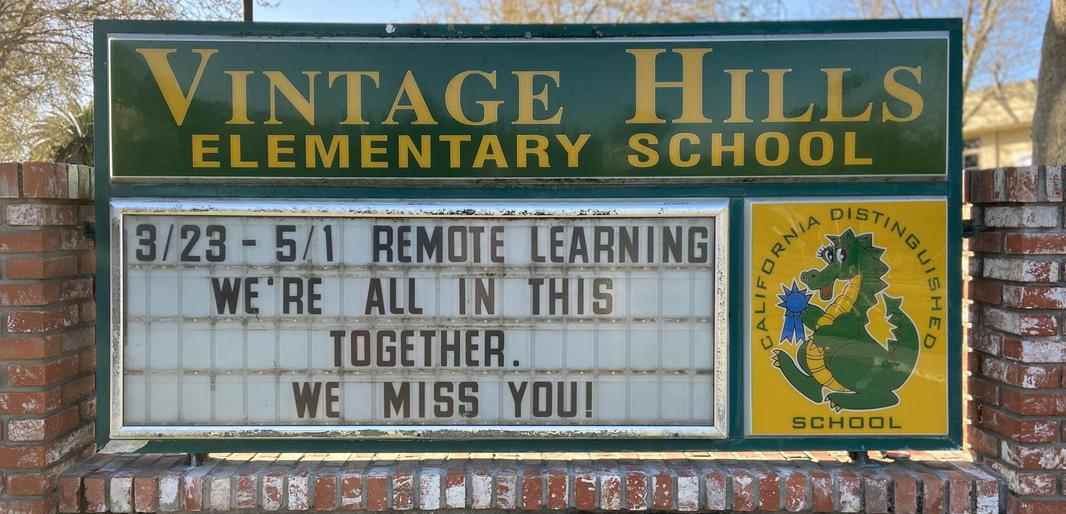 VINTAGE HILLS
ELEMENTARY SCHOOL
3/23 - 5/1 REMOTE LEARNING
WE'RE ALL IN THIS
TOGETHER.
WE MISS YOU!
CALIFORNIA DISTINGUISHED
SCHOOL